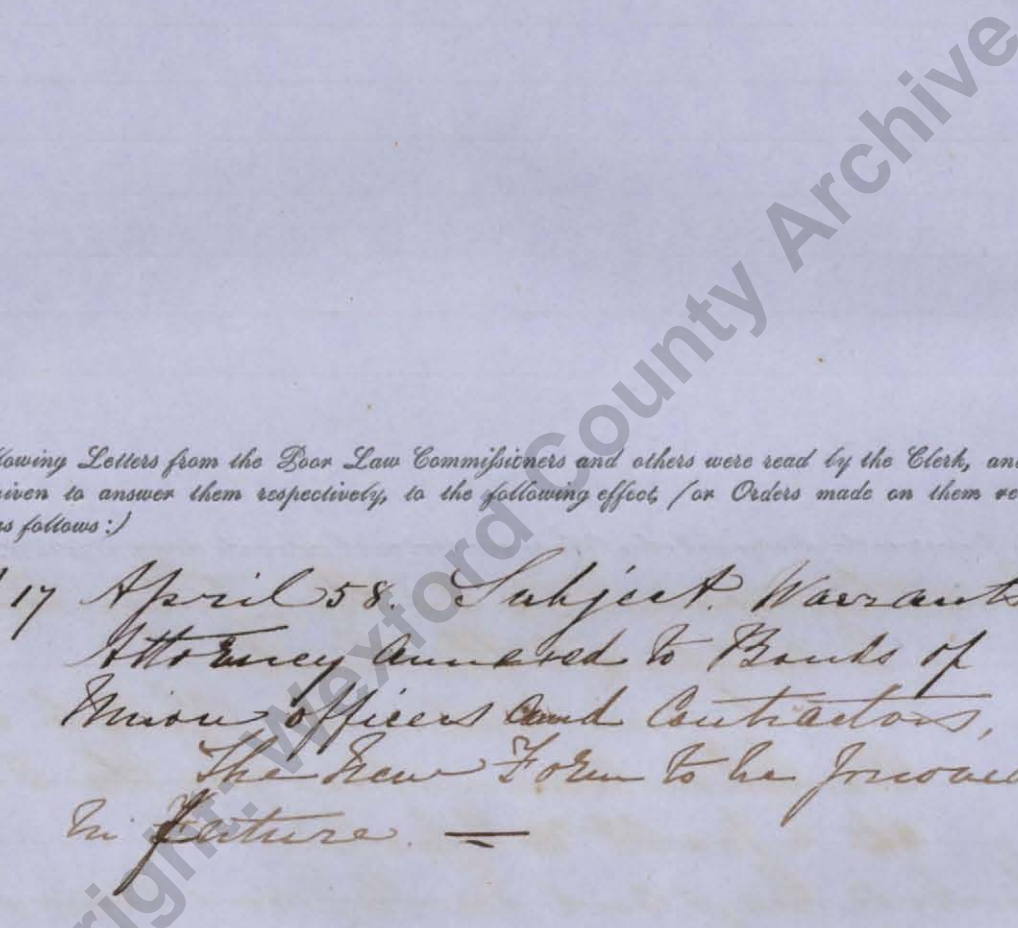 lowing Letters from the Poor Law Commissioners and others were read by the Clerk, and
iven to answer them respectively, to the following effect, (or Orders made on them re
as follows:)
17 April 58. Subject. Warrants
Attorney annexed to Bonds of
Union officers and Contractors,
The New Form to be
in future. —
right: Wexford County Archive